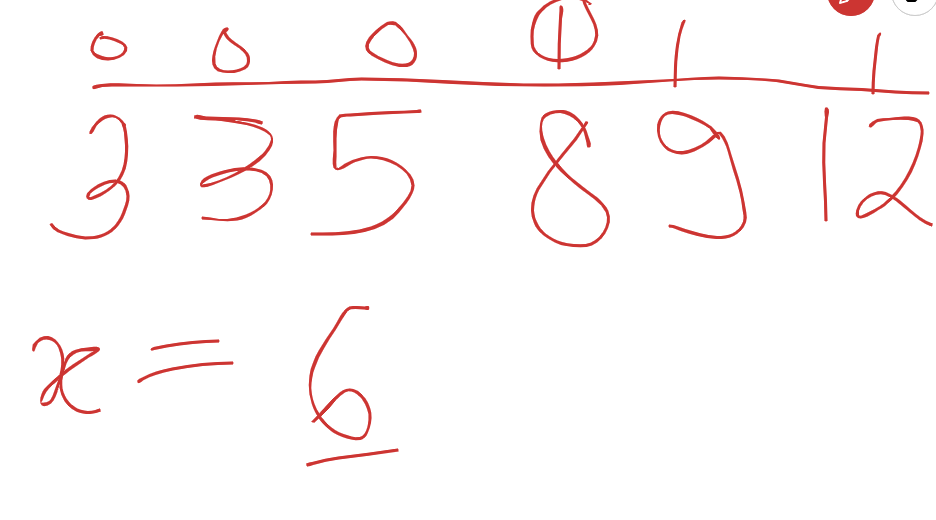 0 0 0 1 1 1
3 3 5 8 9 12
x = 6